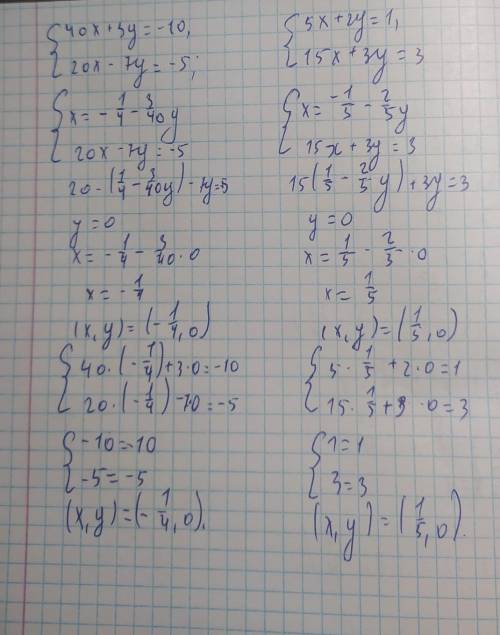 40x+3y=-10,
20x-7y=-5;
x=-1/4-3/40y
20x-7y=-5
20-(1/4-3/40y)-7y=5
y=0
x=-1/4-3/40·0
x=-1/4
(x,y)=(-1/4,0)
40·(-1/4)+3·0=-10
20·(-1/4)-70=-5
-10=-10
-5=-5
(x,y)=(-1/4,0).
5x+2y=1,
15x+3y=3
x=-1/5-2/5y
15x+3y=3
15(1/5-2/5y)+3y=3
y=0
x=1/5-2/5·0
x=1/5
(x,y)=(1/5,0)
5·1/5+2·0=1
15·1/5+3·0=3
1=1
3=3
(x,y)=(1/5,0).